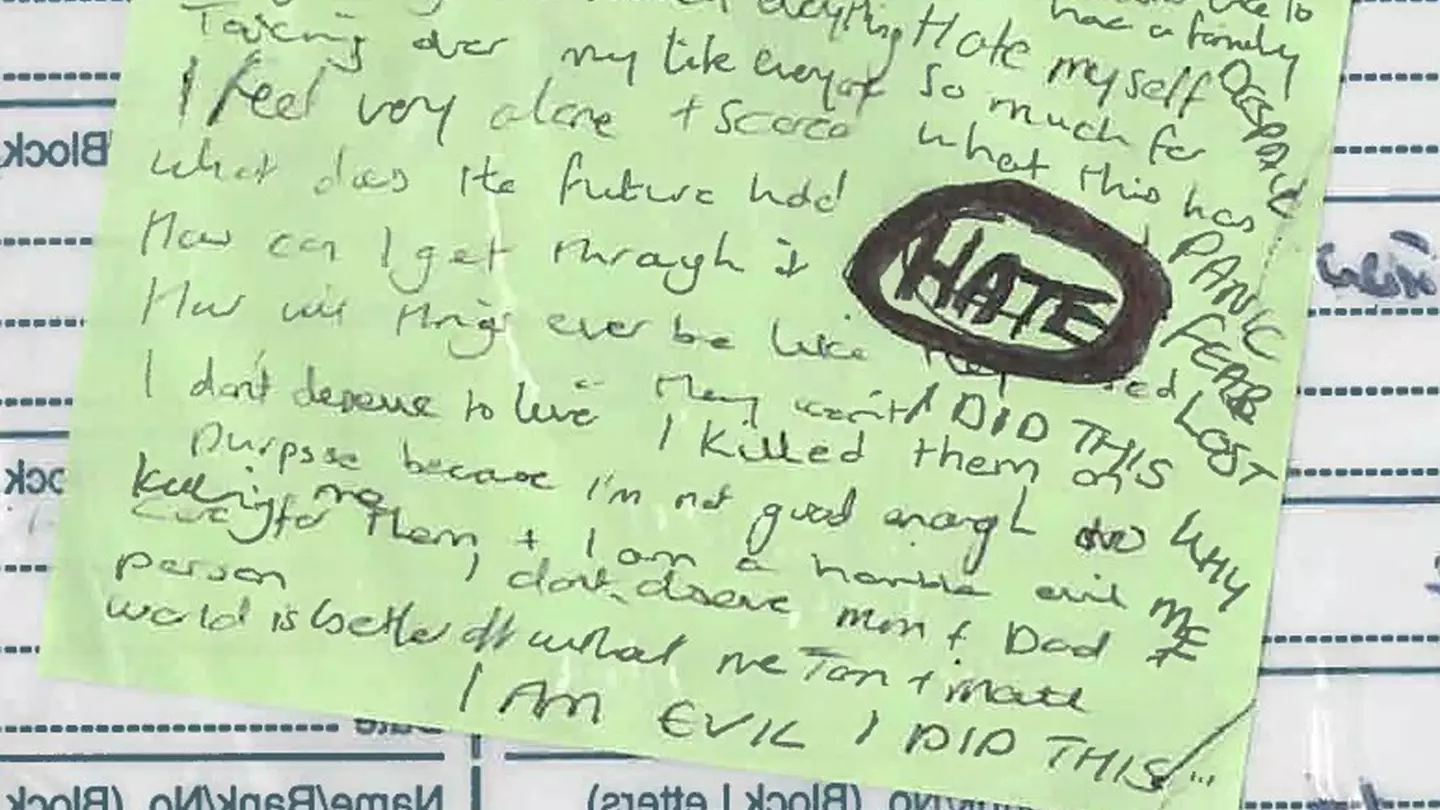 everything Hate myself
had a family
Taking over my life everyday so much for
I feel very alone + scared what this has
what does the future hold
HATE
How can I get through it
How will things ever be like
I don't deserve to live They I DID THIS
I killed them on
purpose because I'm not good enough
killing me
care for them + I am a horrible evil
person I don't deserve Mum + Dad
world is better off without me +
I AM EVIL I DID THIS
DESPAIR
PANIC
FEAR
LOST
WHY
ME
(Block
Date
Name/Bank/No (Block
(Block Letters)